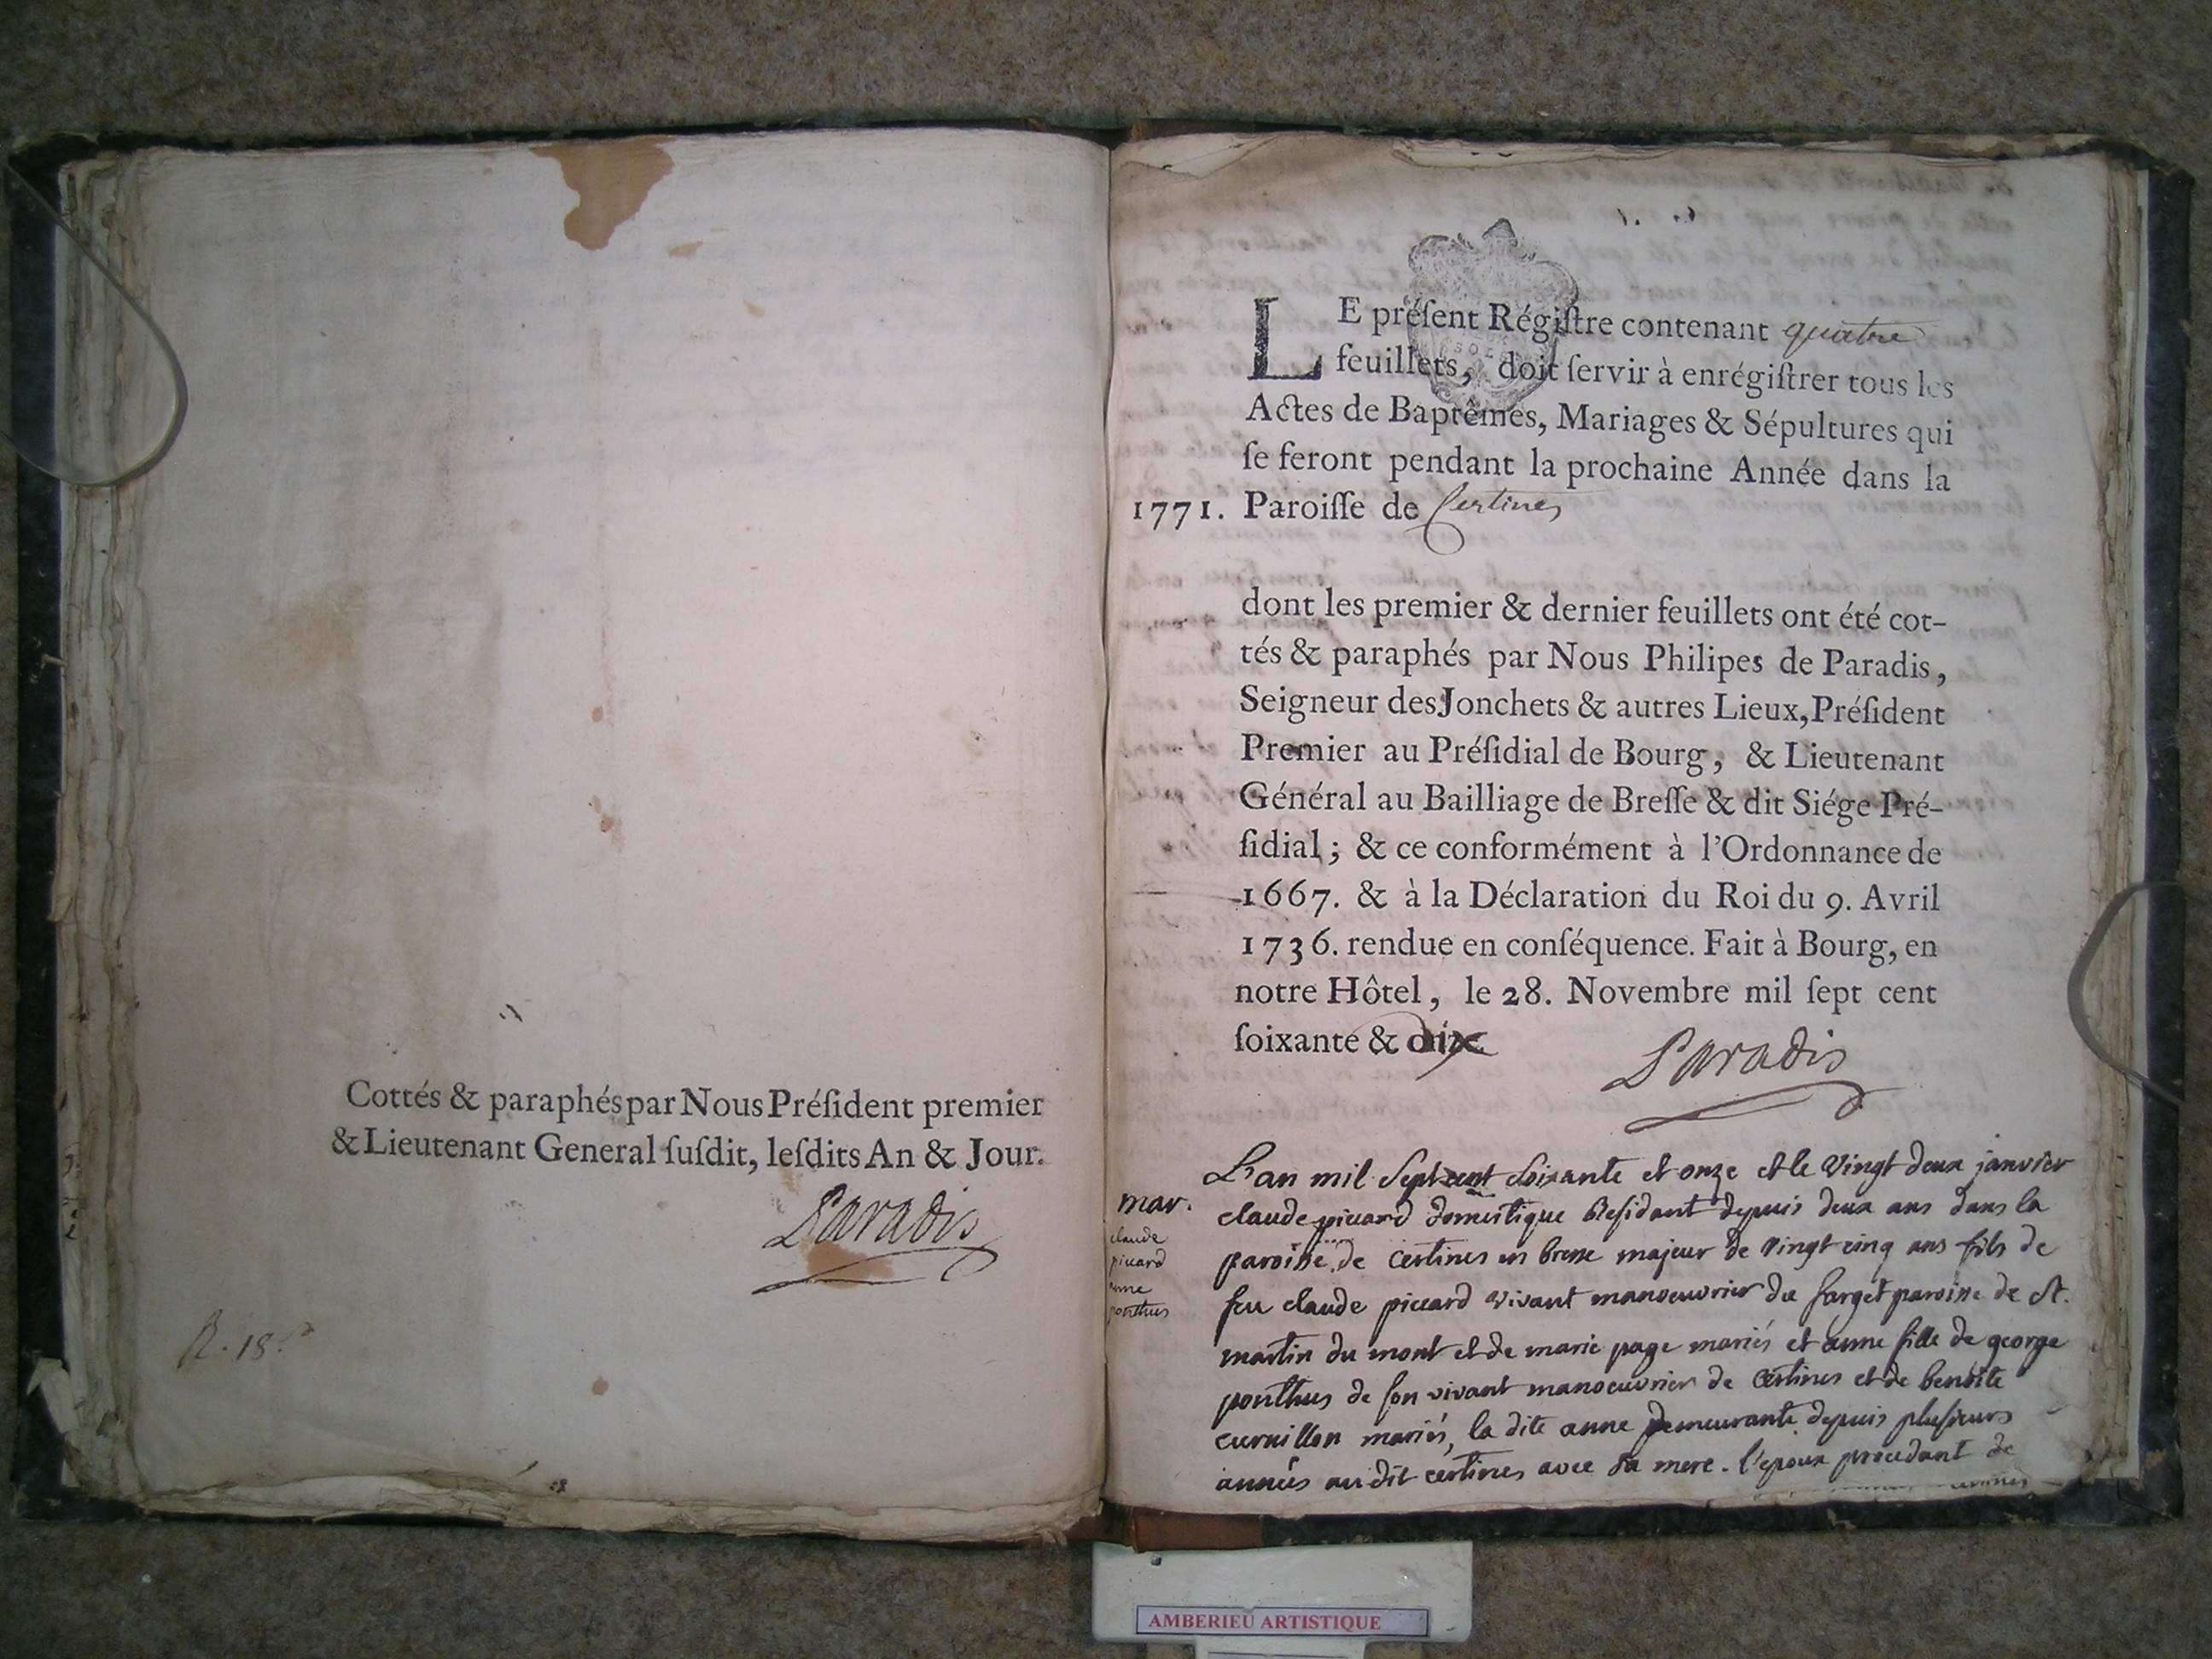 Cottés & paraphés par Nous Préſident premier
& Lieutenant General ſuſdit, leſdits An & Jour.
Paradis
R. 18.
LE préſent Régiſtre contenant quatre
feuillets, doit ſervir à enrégiſtrer tous les
Actes de Baptêmes, Mariages & Sépultures qui
ſe feront pendant la prochaine Année dans la
1771. Paroiſſe de Certines
dont les premier & dernier feuillets ont été cot-
tés & paraphés par Nous Philipes de Paradis,
Seigneur des Jonchets & autres Lieux, Préſident
Premier au Préſidial de Bourg, & Lieutenant
Général au Bailliage de Breſſe & dit Siége Pré-
ſidial; & ce conformément à l'Ordonnance de
1667. & à la Déclaration du Roi du 9. Avril
1736. rendue en conſéquence. Fait à Bourg, en
notre Hôtel, le 28. Novembre mil ſept cent
ſoixante & dix
Paradis
mar.
claude
piccard
anne
ponthus
L'an mil sept cent soixante et onze et le vingt deux janvier
claude piccard domestique residant depuis deux ans dans la
paroisse de certines en bresse majeur de vingt cinq ans fils de
feu claude piccard vivant manoeuvrier du farget paroisse de st.
martin du mont et de marie page mariés et anne fille de george
ponthus de son vivant manoeuvrier de certines et de benoite
cuvuillon mariés, la dite anne demeurante depuis plusieurs
années au dit certines avec sa mere. l'epoux procedant de
AMBERIEU ARTISTIQUE